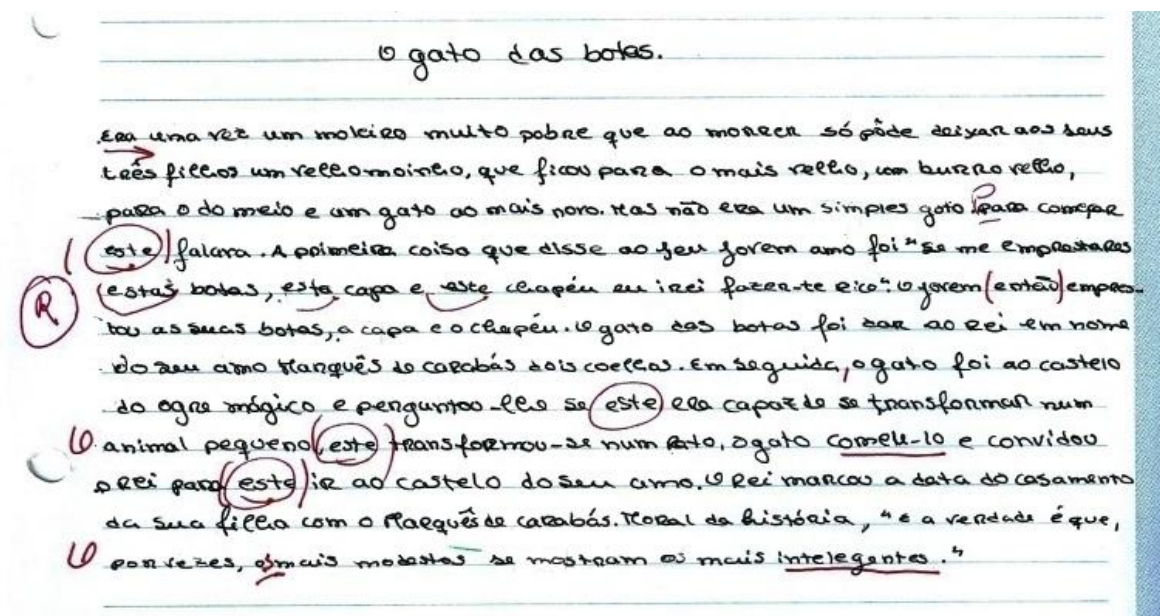 O gato das botas.
Era uma vez um moleiro muito pobre que ao morrer só pôde deixar aos seus
três filhos um velho moinho, que ficou para o mais velho, um burro velho,
para o do meio e um gato ao mais novo. Mas não era um simples gato para começar
este falava. A primeira coisa que disse ao seu jovem amo foi "se me emprestares
R estas botas, esta capa e este chapéu eu irei fazer-te rico". O jovem (então) empres-
tou as suas botas, a capa e o chapéu. O gato das botas foi dar ao Rei em nome
do seu amo Marquês de carabás dois coelhos. Em seguida, o gato foi ao castelo
do ogre mágico e perguntou-lhe se este era capaz de se transformar num
animal pequeno, este transformou-se num rato, o gato comeu-lo e convidou
o Rei para este ir ao castelo do seu amo. O Rei marcou a data do casamento
da sua filha com o Marquês de carabás. Moral da história, "e a verdade é que,
por vezes, os mais modestos se mostram os mais intelegentes."